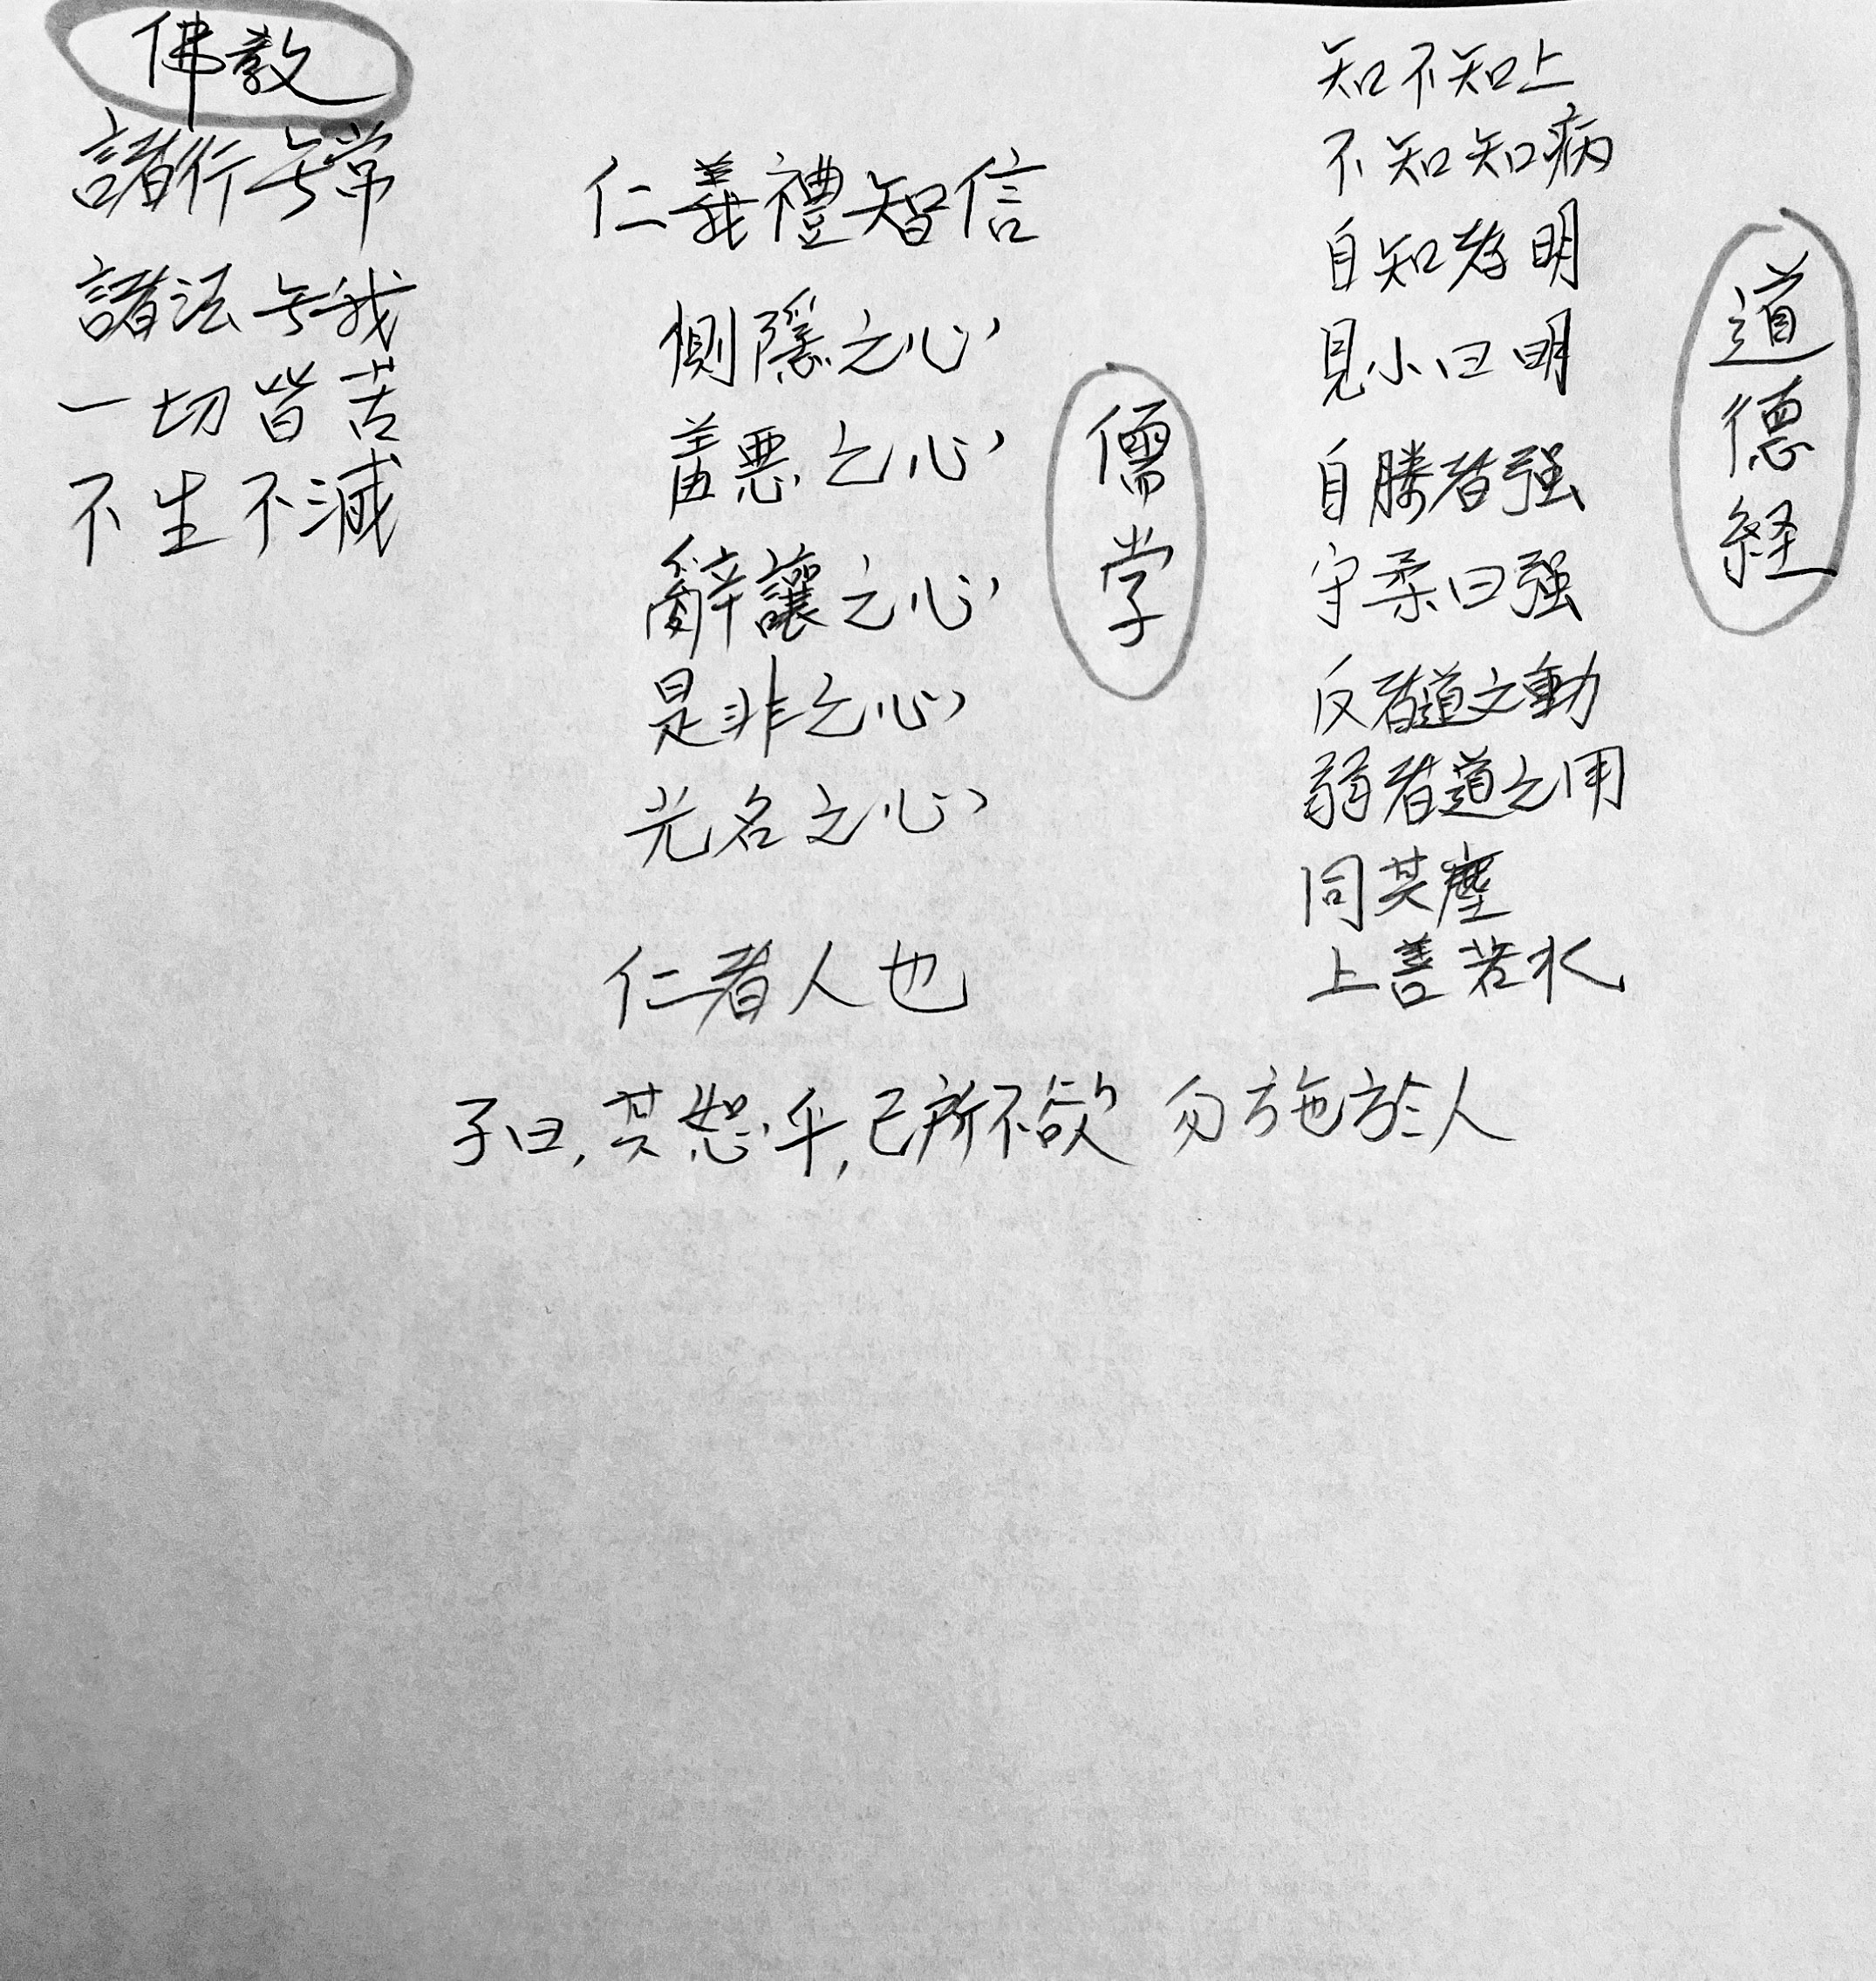 佛教
諸行无常
諸法无我
一切皆苦
不生不滅
仁義禮智信
惻隱之心
羞悪之心
辭讓之心
是非之心
光名之心
仁者人也
儒学
知不知上
不知知病
自知者明
見小曰明
自勝者强
守柔曰强
反者道之動
弱者道之用
同其塵
上善若水
道德経
子曰,其恕乎,己所不欲 勿施於人